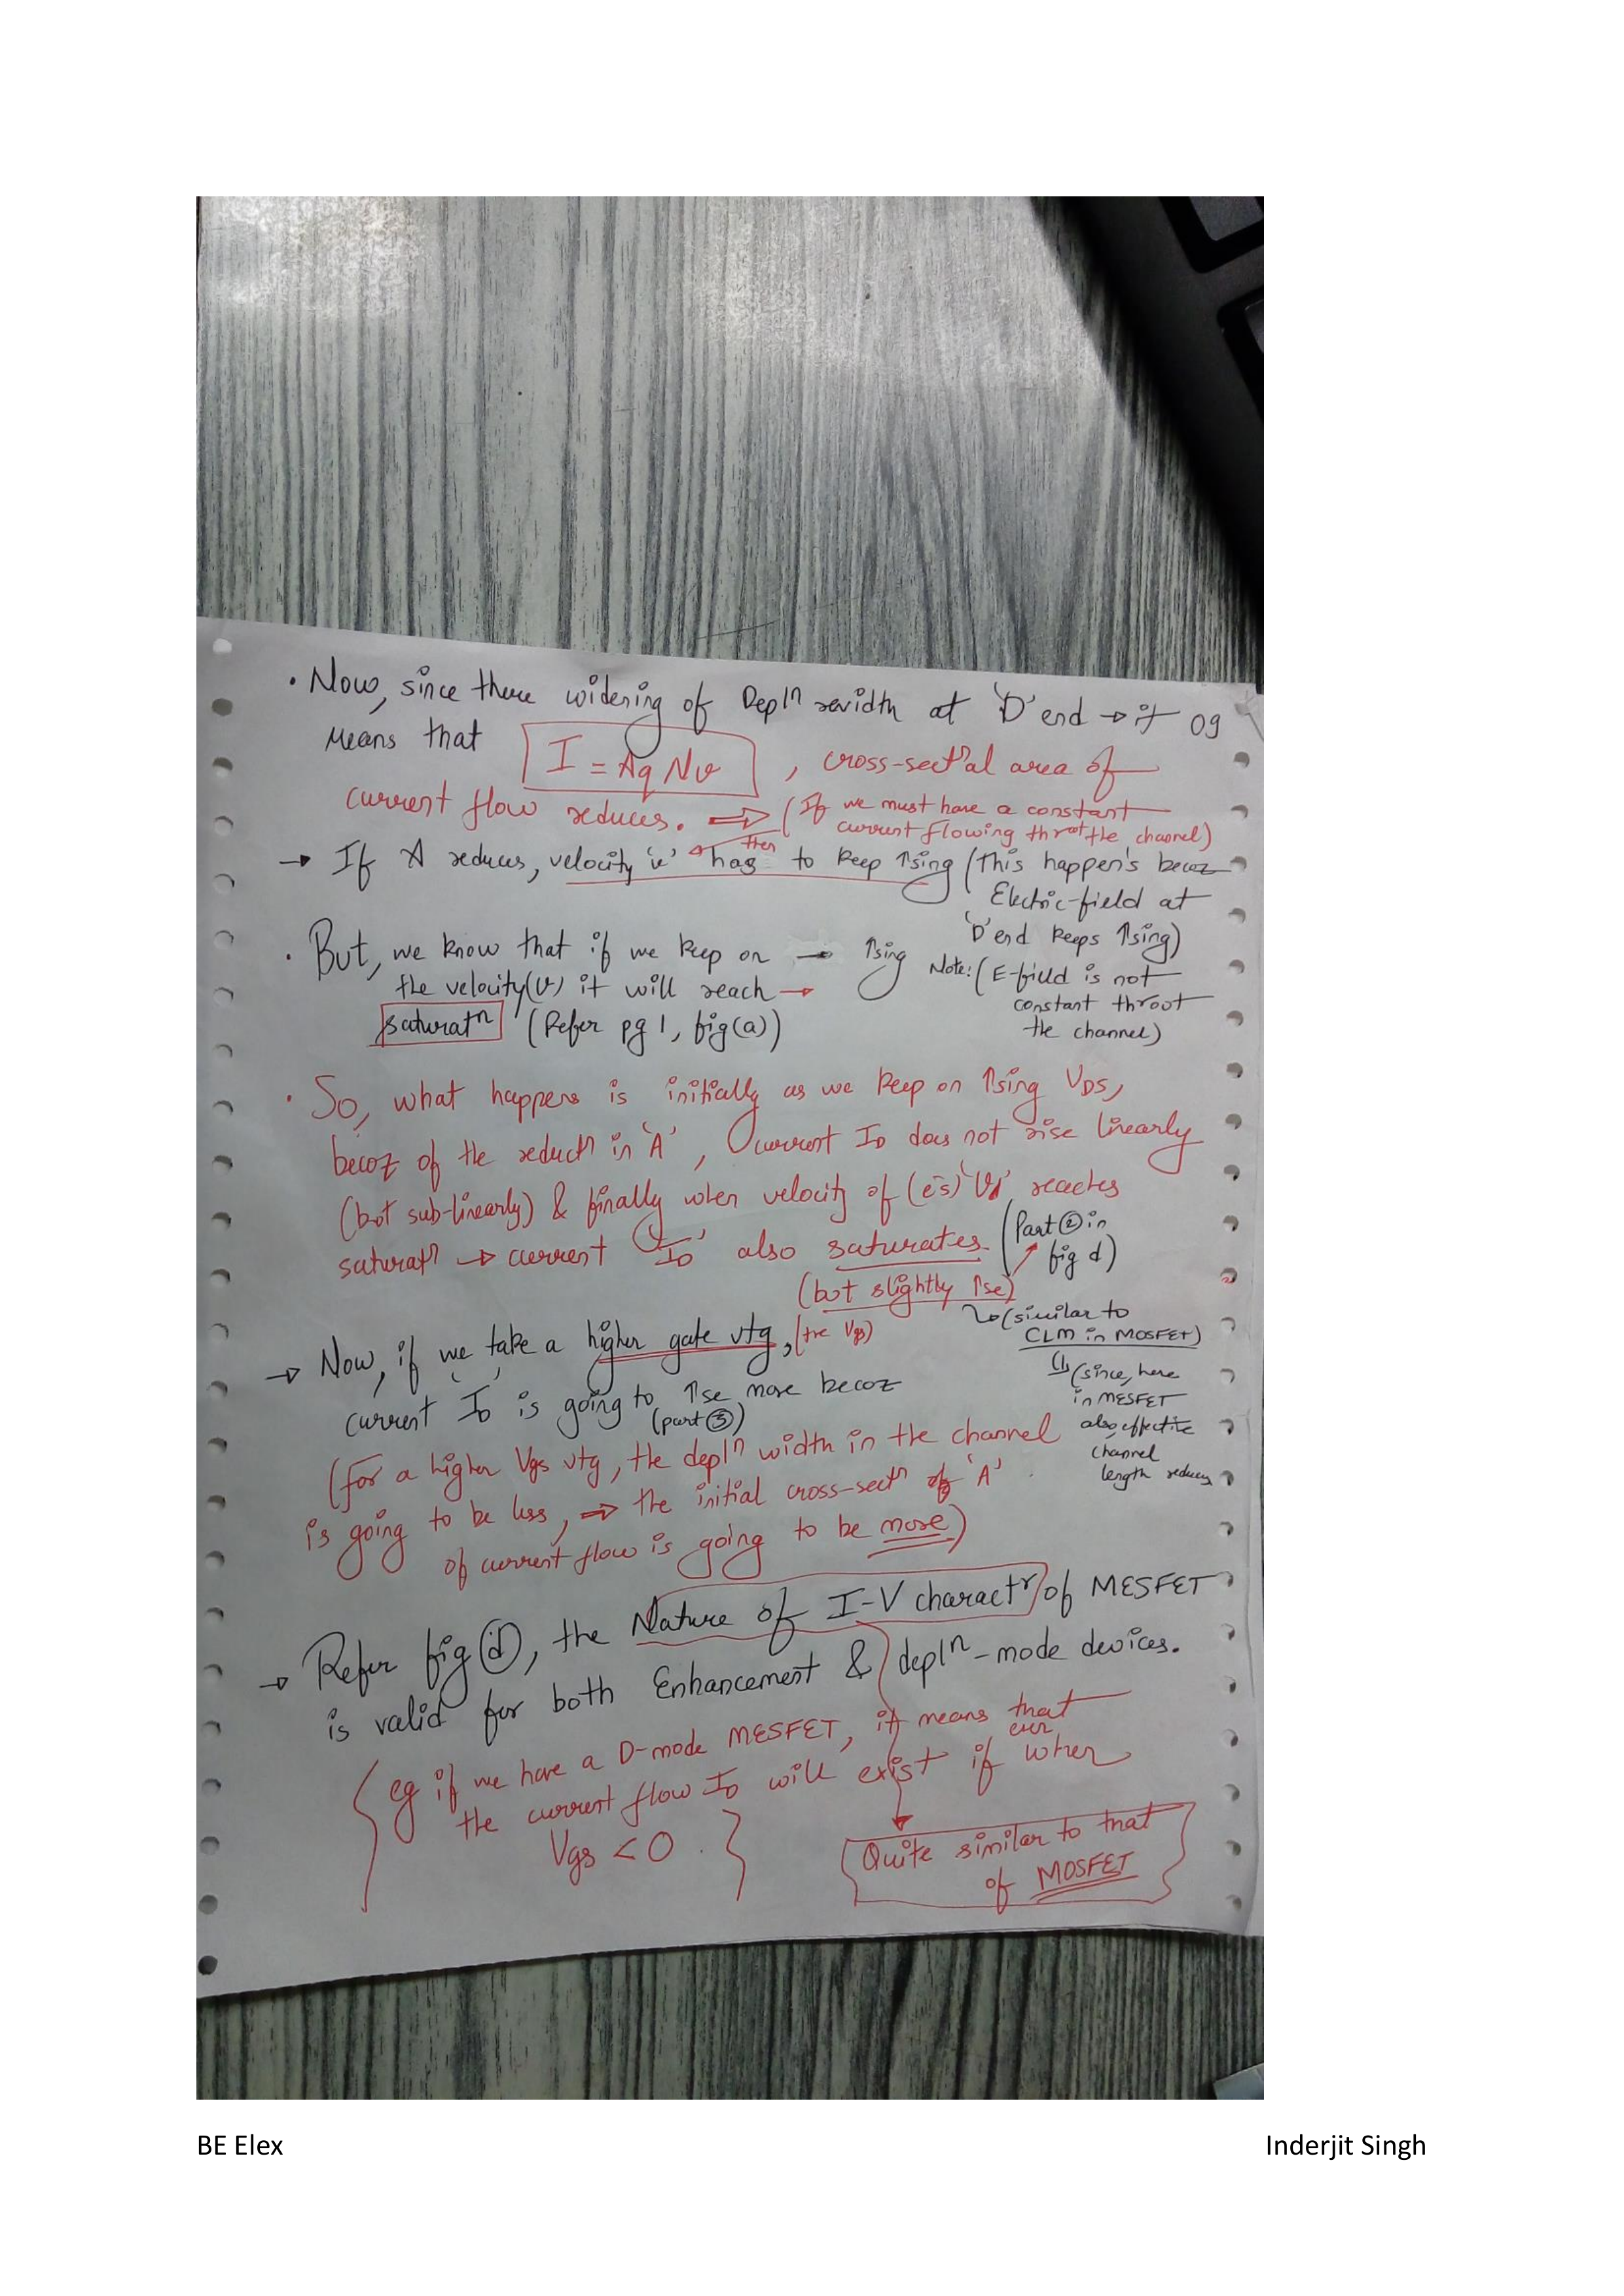 • Now, since there widening of Depln width at 'D' end → it 09
means that I = AqNv , cross-sect'al area of
current flow reduces. ⇒ (If we must have a constant
current flowing throt the channel)
then
→ If A reduces, velocity 'v' has to keep ↑sing (This happen's becoz
Electric-field at
'D' end keeps ↑sing)
• But, we know that if we keep on → ↑sing
the velocity(v) it will reach →
saturatn (Refer pg 1, fig(a))
Note: (E-field is not
constant throot
the channel)
• So, what happens is initially as we keep on ↑sing VDS,
becoz of the reductn in 'A', current ID does not rise linearly
(bot sub-linearly) & finally when velocity of (e's) 'Vd' reaches
saturatn → current 'ID' also saturates (Part ② in
fig d)
(bot slightly ↑se)
↳ (similar to
CLM in MOSFET)
↳ (since, here
in MESFET
also, effective
channel
length reduces
→ Now, if we take a higher gate vtg, (+ve Vgs)
current 'ID' is going to ↑se more becoz
(part ③)
(for a higher Vgs vtg, the depln width in the channel
is going to be less, ⇒ the initial cross-sectn of 'A'
of current flow is going to be more)
→ Refer fig (d), the Nature of I-V charactr of MESFET
is valid for both Enhancement & depln-mode devices.
{ eg if we have a D-mode MESFET, it means that
the current flow ID will exist if even when
Vgs < 0 . }
Quite similar to that
of MOSFET
BE Elex Inderjit Singh